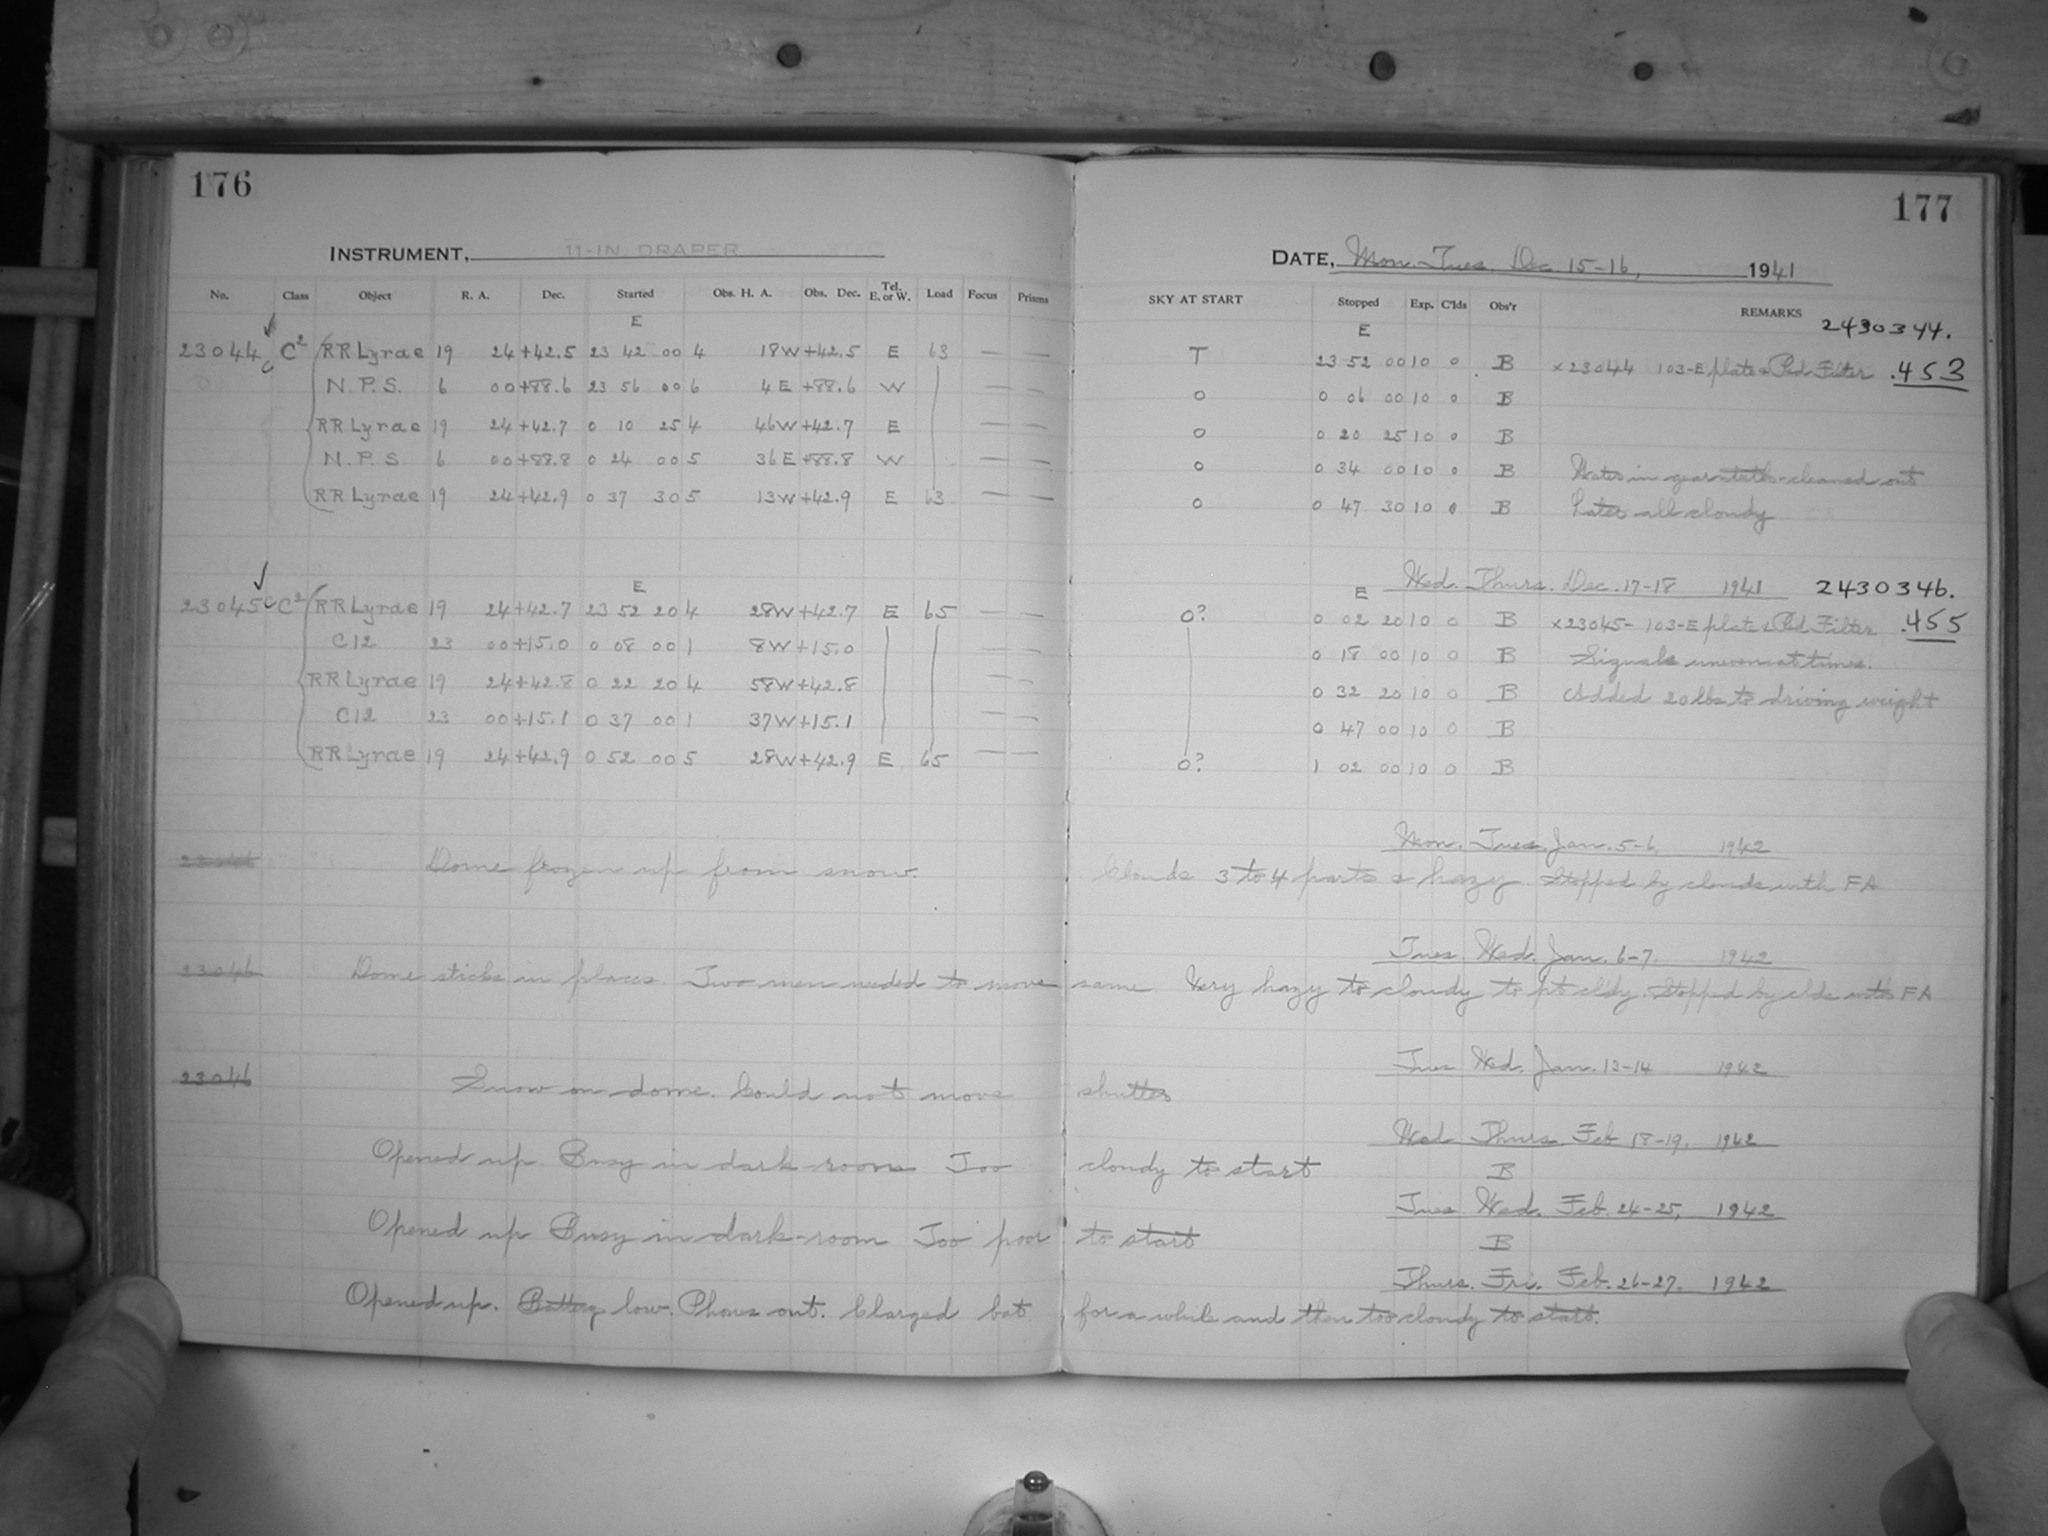 176
INSTRUMENT, 11-IN. DRAPER
No. Class Object R. A. Dec. Started Obs. H. A. Obs. Dec. Tel. E. or W. Load Focus Prisms
E
23044 C C² RR Lyrae 19 24 +42.5 23 42 00 4 18W +42.5 E 63 — —
N.P.S. 6 00 +88.6 23 56 00 6 4E +88.6 W — —
RR Lyrae 19 24 +42.7 0 10 25 4 46W +42.7 E — —
N.P.S 6 00 +88.8 0 24 00 5 36E +88.8 W — —
RR Lyrae 19 24 +42.9 0 37 30 5 13W +42.9 E 63 — —
E
23045 C C² RR Lyrae 19 24 +42.7 23 52 20 4 28W +42.7 E 65 — —
C12 23 00 +15.0 0 08 00 1 8W +15.0 — —
RR Lyrae 19 24 +42.8 0 22 20 4 58W +42.8 — —
C12 23 00 +15.1 0 37 00 1 37W +15.1 — —
RR Lyrae 19 24 +42.9 0 52 00 5 28W +42.9 E 65 — —
23046 Dome frozen up from snow.
23046 Dome sticks in places. Two men needed to move
23046 Snow on dome. Could not move
Opened up Busy in dark-room Too
Opened up Busy in dark-room Too poor
Opened up. Battery low. Phones out. Charged bat
177
DATE, Mon. Tues. Dec 15-16, 1941
SKY AT START Stopped Exp. C'lds Obs'r REMARKS
E 2430344.
T 23 52 00 10 0 B x23044 103-E plate & Red Filter .453
0 0 06 00 10 0 B
0 0 20 25 10 0 B
0 0 34 00 10 0 B Water in gear teeth - cleaned out
0 0 47 30 10 0 B Later all cloudy
E Wed. Thurs. Dec. 17-18 1941 2430346.
0? 0 02 20 10 0 B x23045- 103-E plate & Red Filter .455
0 18 00 10 0 B Signals uneven at times.
0 32 20 10 0 B Added 20 lbs to driving weight
0 47 00 10 0 B
0? 1 02 00 10 0 B
Mon. Tues. Jan. 5-6, 1942
Clouds 3 to 4 parts & hazy. Stopped by clouds with FA
Tues. Wed. Jan. 6-7. 1942
same. Very hazy to cloudy to pt cldy. Stopped by clds with FA
Tues Wed. Jan. 13-14 1942
shutter
Wed Thurs Feb 18-19, 1942
cloudy to start B
Tues Wed. Feb. 24-25, 1942
to start B
Thurs. Fri. Feb. 26-27. 1942
for a while and then too cloudy to start.